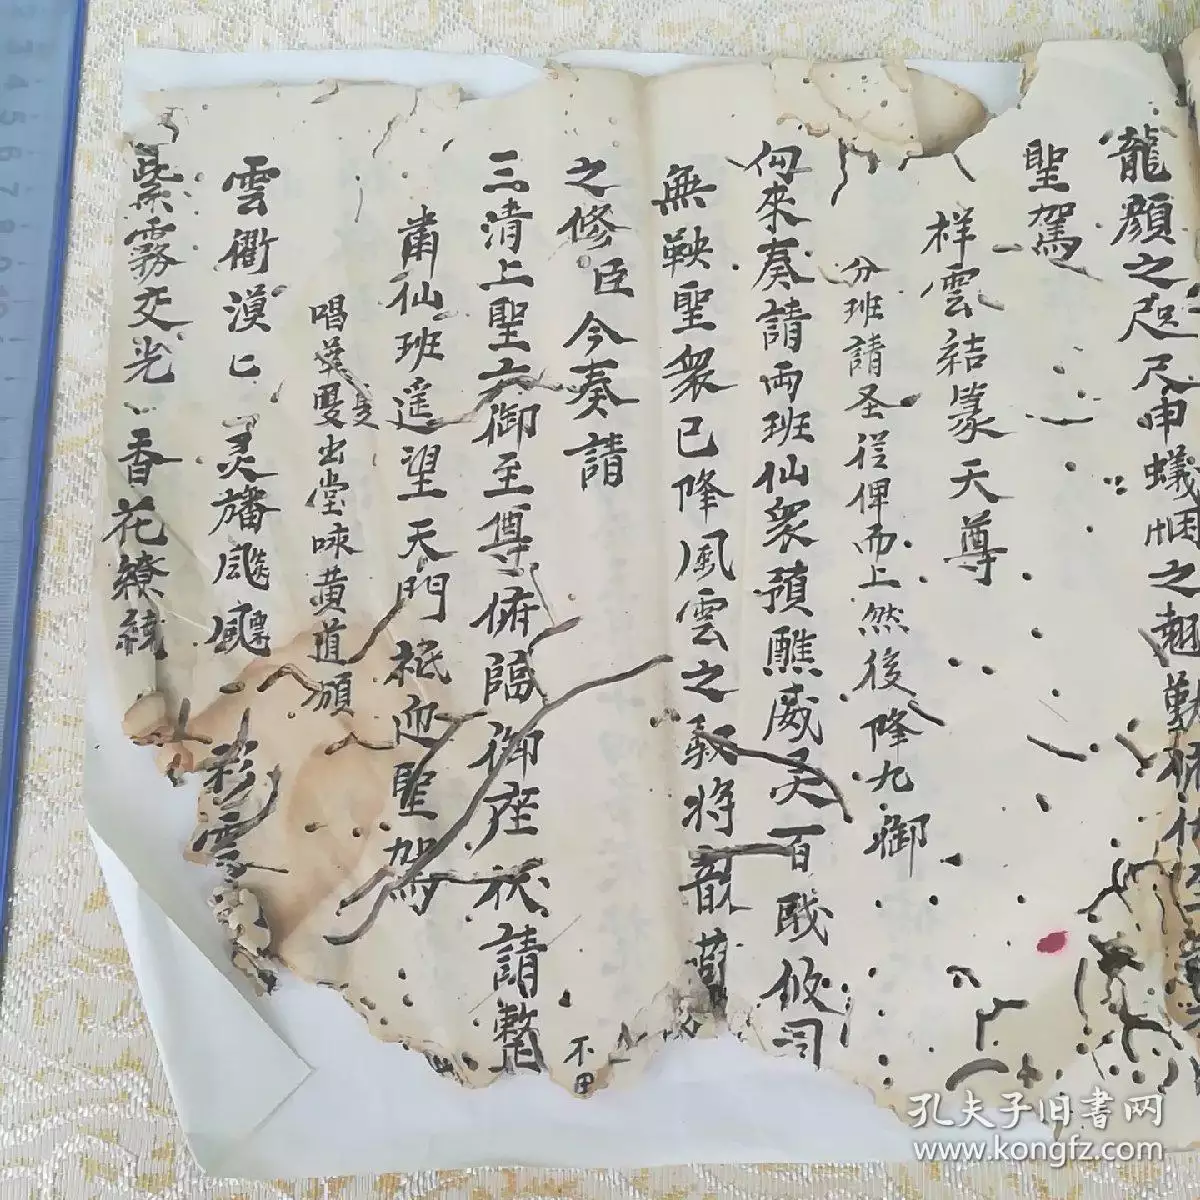 龍顔之咫尺申蟻悃之翹勤
聖駕
祥雲結篆天尊
分班請圣從俾而上然後降九御
向來奏請兩班仙衆預醮威灵百职攸司
無鞅聖衆已降風雲之馭將韶
之修臣今奏請
三清上聖六御至尊俯臨御座伏請整
肅仙班遥望天門祗迎聖駕
唱出堂咏黄道頌
雲衢漠匕灵旛飚飄彩雲
紫霧交光香花繚繞
不田
孔夫子旧書网
www.kongfz.com